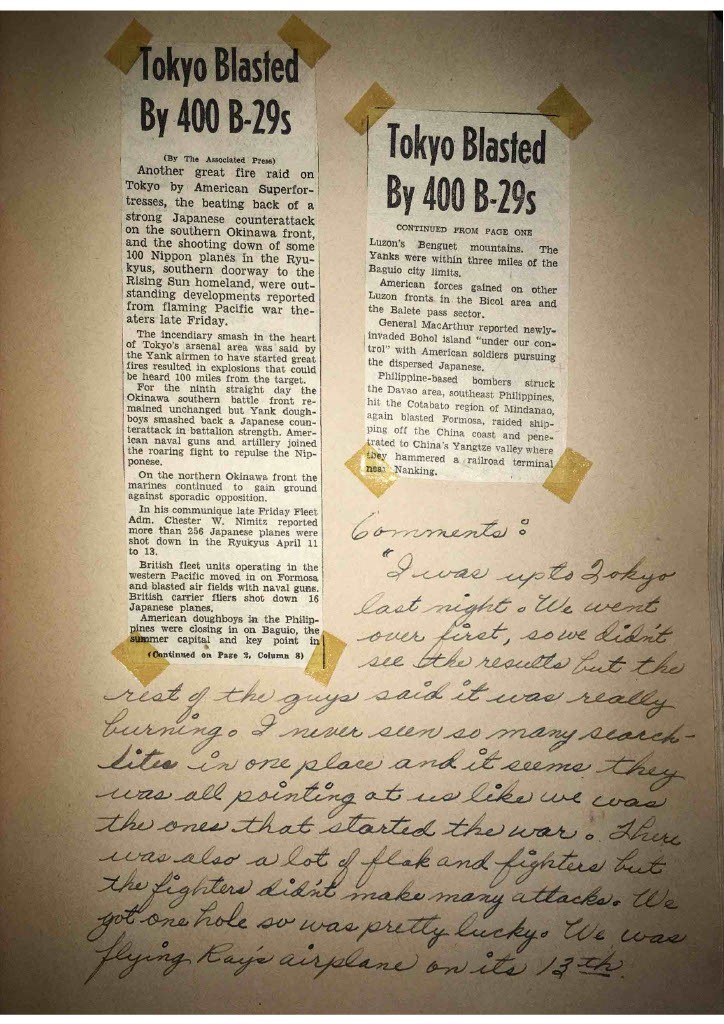 Tokyo Blasted
By 400 B-29s
(By The Associated Press)
Another great fire raid on
Tokyo by American Superfor-
tresses, the beating back of a
strong Japanese counterattack
on the southern Okinawa front,
and the shooting down of some
100 Nippon planes in the Ryu-
kyus, southern doorway to the
Rising Sun homeland, were out-
standing developments reported
from flaming Pacific war the-
aters late Friday.
The incendiary smash in the heart
of Tokyo's arsenal area was said by
the Yank airmen to have started great
fires resulted in explosions that could
be heard 100 miles from the target.
For the ninth straight day the
Okinawa southern battle front re-
mained unchanged but Yank dough-
boys smashed back a Japanese coun-
terattack in battalion strength. Amer-
ican naval guns and artillery joined
the roaring fight to repulse the Nip-
ponese.
On the northern Okinawa front the
marines continued to gain ground
against sporadic opposition.
In his communique late Friday Fleet
Adm. Chester W. Nimitz reported
more than 256 Japanese planes were
shot down in the Ryukyus April 11
to 13.
British fleet units operating in the
western Pacific moved in on Formosa
and blasted air fields with naval guns.
British carrier fliers shot down 16
Japanese planes.
American doughboys in the Philip-
pines were closing in on Baguio, the
summer capital and key point in
(Continued on Page 2, Column 8)
Tokyo Blasted
By 400 B-29s
CONTINUED FROM PAGE ONE
Luzon's Benguet mountains. The
Yanks were within three miles of the
Baguio city limits.
American forces gained on other
Luzon fronts in the Bicol area and
the Balete pass sector.
General MacArthur reported newly-
invaded Bohol island "under our con-
trol" with American soldiers pursuing
the dispersed Japanese.
Philippine-based bombers struck
the Davao area, southeast Philippines,
hit the Cotabato region of Mindanao,
again blasted Formosa, raided ship-
ping off the China coast and pene-
trated to China's Yangtze valley where
they hammered a railroad terminal
near Nanking.
Comments:
"I was up to Tokyo
last night. We went
over first, so we didn't
see the results but the
rest of the guys said it was really
burning. I never seen so many search-
lites in one place and it seems they
was all pointing at us like we was
the ones that started the war. There
was also a lot of flak and fighters but
the fighters didn't make many attacks. We
got one hole so was pretty lucky. We was
flying Ray's airplane on its 13th.